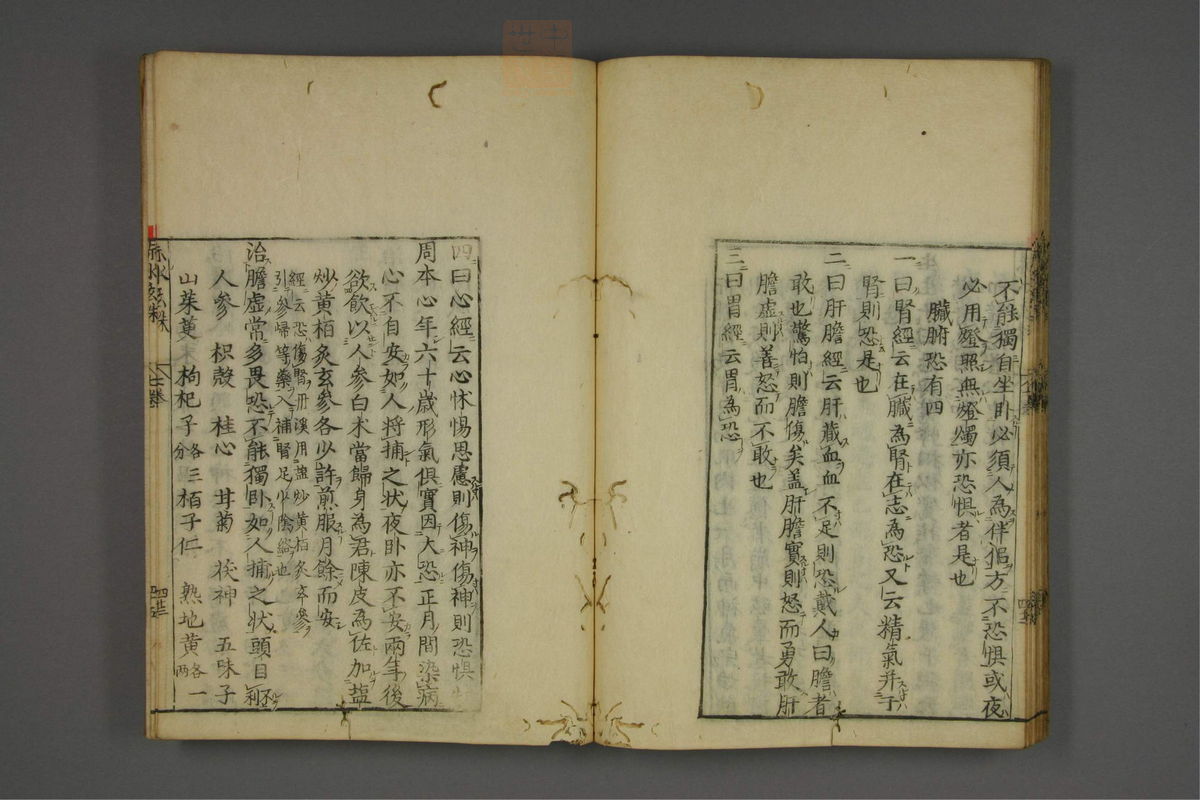 不能獨自坐卧必須人為伴侶方不恐惧或夜
必用燈照無燈燭亦恐惧者是也
臟腑恐有四
一曰腎經云在臟為腎在志為恐又云精氣并于
腎則恐是也
二曰肝膽經云肝藏血血不足則恐戴人曰膽者
敢也驚怕則膽傷矣盖肝膽實則怒而勇敢肝
膽虚則善恐而不敢也
三曰胃經云胃為恐
四曰心經云心怵惕思慮則傷神傷神則恐惧
周本心年六十歲形氣俱實因大恐正月間染病
心不自安如人將捕之狀夜卧亦不安兩年後
欲飲以人參白术當歸身為君陳皮為佐加塩
炒黄栢炙玄參各少許煎服月餘而安
經云恐傷腎丹溪用塩炒黄栢炙玄參
引參歸等藥入補腎足少陰絡也
治膽虚常多畏恐不能獨卧如人捕之狀頭目不利
人參 枳殻 桂心 甘菊 茯神 五味子
山茱萸 枸杞子各三分 栢子仁 熟地黄各一兩